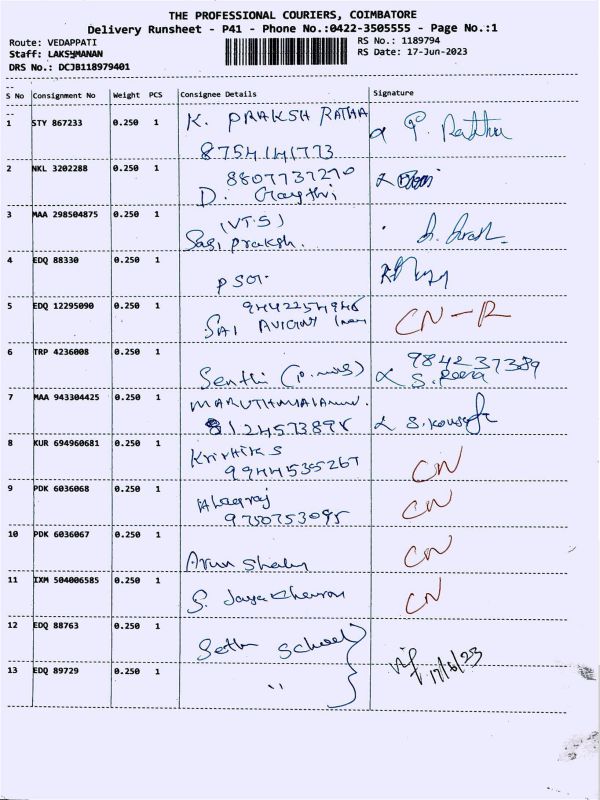 THE PROFESSIONAL COURIERS, COIMBATORE
Delivery Runsheet - P41 - Phone No.:0422-3505555 - Page No.:1
Route: VEDAPPATI
Staff: LAKSYMANAN
DRS No.: DCJB118979401
RS No.: 1189794
RS Date: 17-Jun-2023
S No Consignment No Weight PCS Consignee Details Signature
1 STY 867233 0.250 1 K. PRAKSH RATHA
8754141773
2 NKL 3202288 0.250 1 8807737270
D.
3 MAA 298504875 0.250 1 (V.T.S)
Sasi praksh.
4 EDQ 88330 0.250 1
5 EDQ 12295090 0.250 1 9442254946 CN-R
SAI
6 TRP 4236008 0.250 1 Senthi 9842237389
7 MAA 943304425 0.250 1
8124573898
8 KUR 694960681 0.250 1 Krithik S CN
9944535267
9 PDK 6036068 0.250 1 Alagraj CN
9750753095
10 PDK 6036067 0.250 1 Arun CN
11 IXM 504006585 0.250 1 S. CN
12 EDQ 88763 0.250 1 Seth School
17/6/23
13 EDQ 89729 0.250 1 "